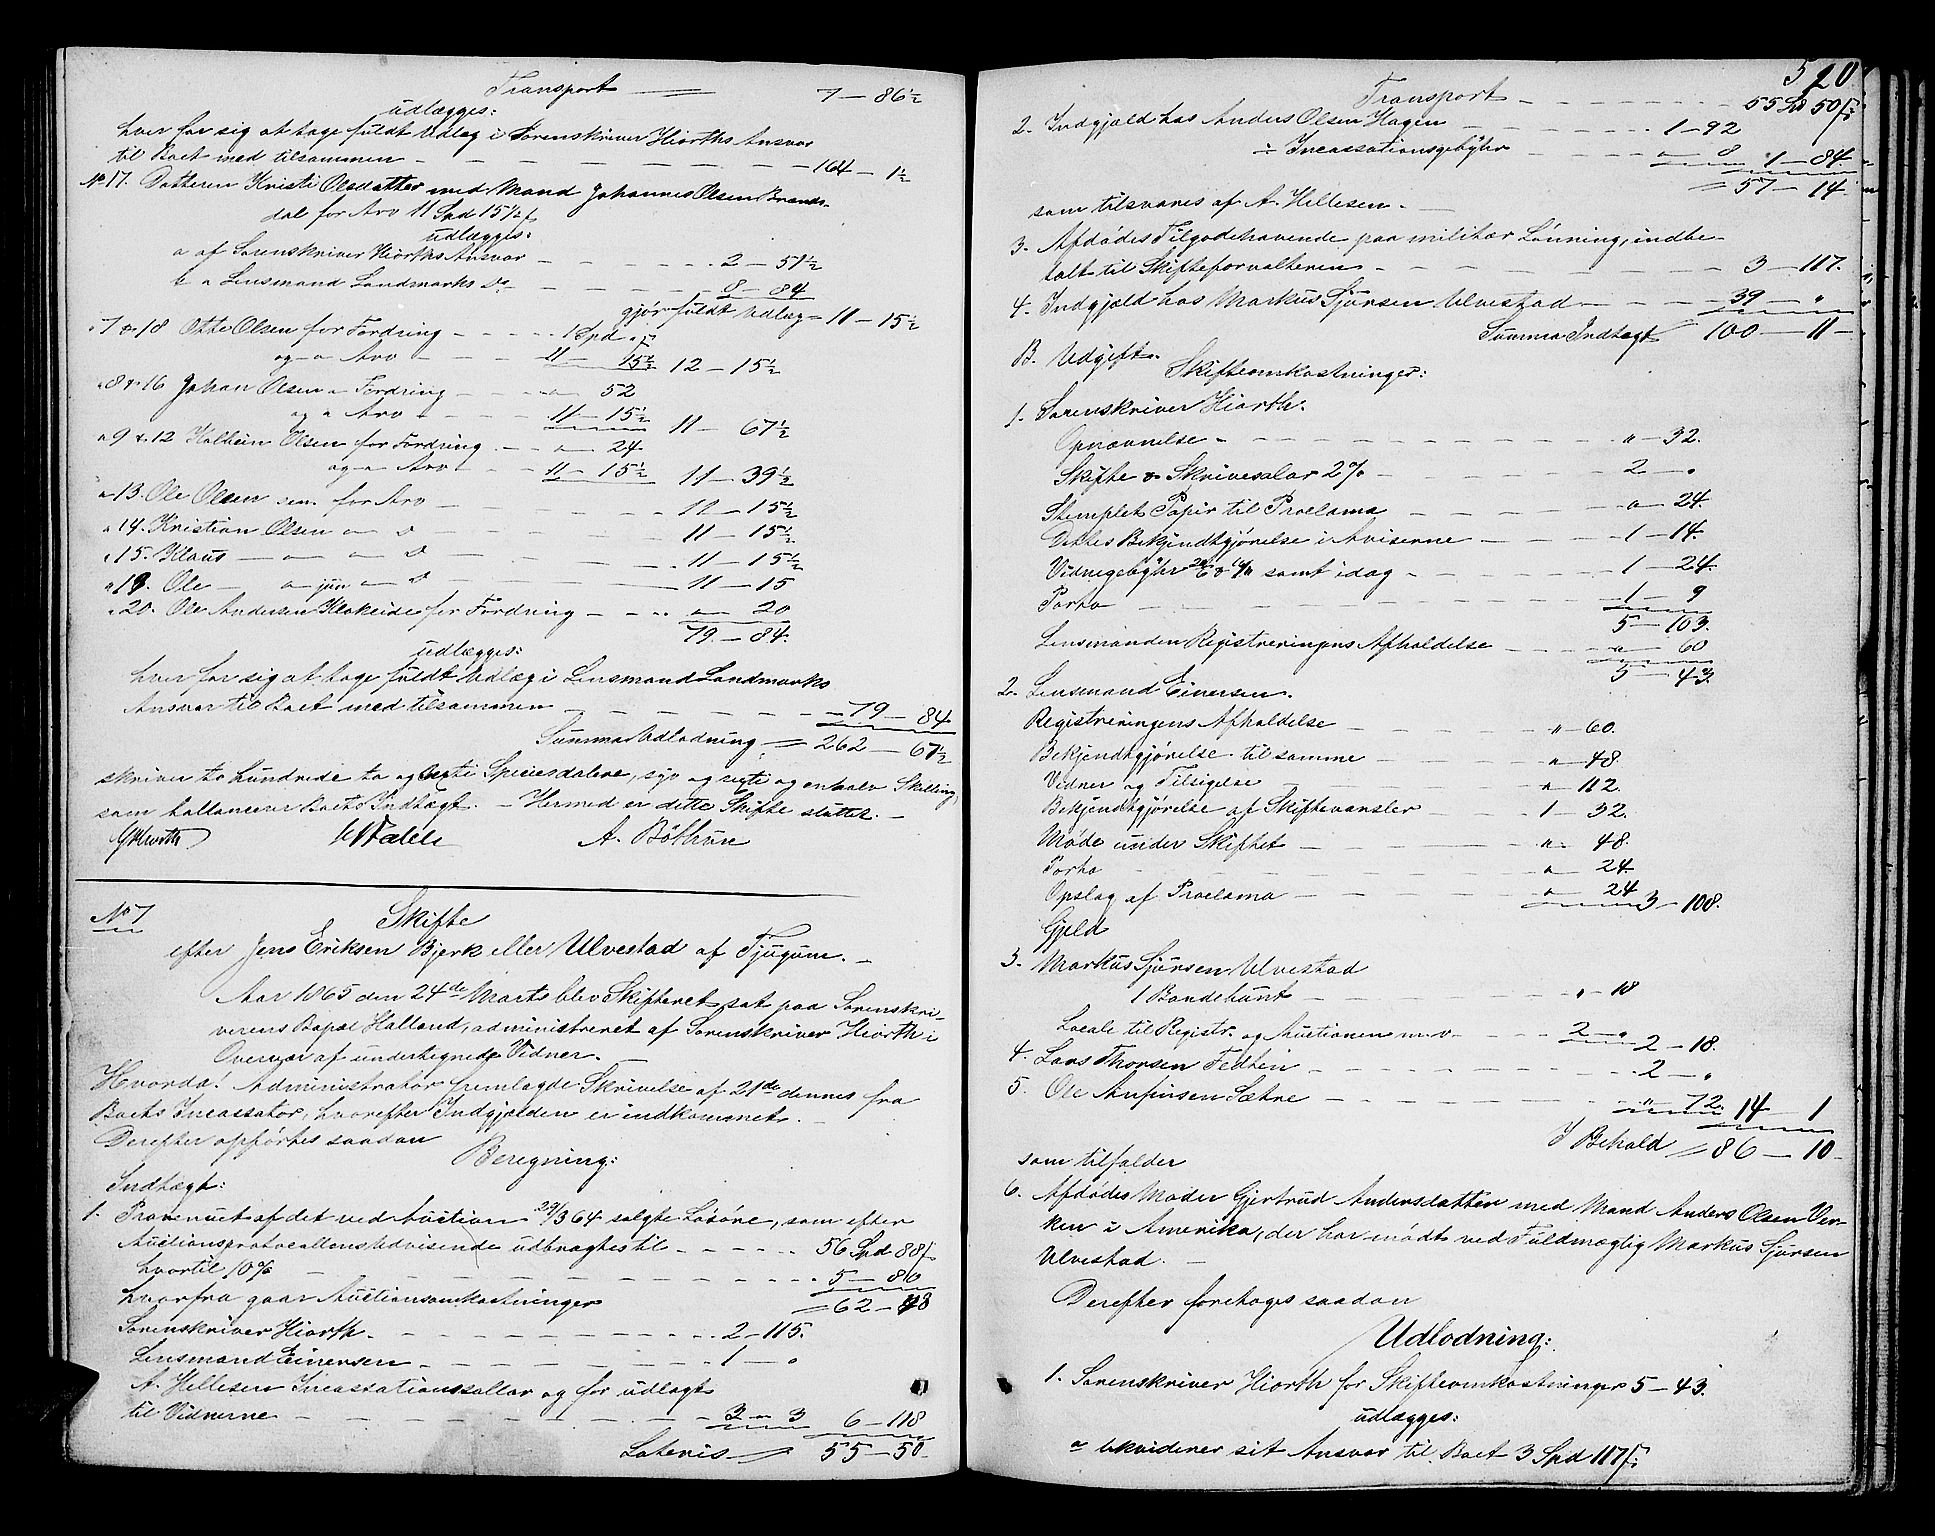 Transport — 7 — 86½
udlægges:
hver for sig at tage fuldt Udlæg i Sorenskriver Hiorths Ansvar
til Boet med tilsammen — 164 — 1½
No 17. Datteren Kristi Olsdatter med Mand Johannes Olsen Brands-
dal for Arv 11 Spd 15½ s
udlægges:
a af Sorenskriver Hiorths Ansvar — 2 — 51½
b " Lensmand Landmarks Do — 8 — 84
gjør fuldt Udlæg = 11 — 15½
" 7 & 18 Otte Olsen for Fordring — 1 Spd " s
og " Arv — 11 — 15½ 12 — 15½
" 8 & 16 Johan Olsen " Fordring — " — 52
og " Arv " — 11 — 15½ 11 — 67½
" 9 & 12 Kolbein Olsen for Fordring — " — 24
og " Arv — 11 — 15½ 11 — 39½
" 13. Ole Olsen sen. for Arv — 11 — 15½
" 14. Kristian Olsen " — D — 11 — 15½
" 15. Klaus — " — " — D — 11 — 15½
" 19. Ole — " jun " — D — 11 — 15
" 20. Ole Andersen Klokeide for Fordring — " — 20
79 — 84.
udlægges:
hver for sig at tage fuldt Udlæg i Lensmand Landmarks
Ansvar til Boet med tilsammen — 79 — 84
Summa Udlodning = 262 — 67½
skriver to hundrede to og sexti Speciesdalere, syv og sexti og en halv Skilling,
som ballancerer Boets Indtægt. — Hermed er dette Skifte sluttet. —
GHiorth A. Böthun
No 7 Skifte
efter Jens Eriksen Bjerk eller Ulvestad af Tjugum. —
Aar 1865 den 24de Marts blev Skifteret sat paa Sorenskri-
verens Bopæl Halland, administreret af Sorenskriver Hiorth i
Overvær af undertegnede Vidner. —
Hvorda! Administrator fremlagde Skrivelse af 21de dennes fra
Boets Incassator, hvorefter Indgjælden er indkommet. —
Derefter opførtes saadan
Beregning:
Indtægt:
1. Provenuet af det ved Auction 29/3 64 solgte Løsøre, som efter
Auctionsprotocollens Udvisende udbragtes til — 56 Spd 88 s
hvortil 10% — 5 — 80
= 62 — 48
hvorfra gaar Auctionsomkostninger
Sorenskriver Hiorth — 2 — 115.
Lensmand Einersen — 1 — "
A. Hellesen Incassationssallar og for udlagt
til Vidnerne — 3 " 3 6 — 118
Lateris = 55 — 50.
520
Transport — 55 Spd 50 s
2. Indgjæld hos Anders Olsen Hagen — 1 — 92
÷ Incassationsgebyhr — " — 8 1 — 84
= 57 — 14.
som tilsvares af A. Hellesen. —
3. Afdødes Tilgodehavende paa militær Lønning, indbe-
talt til Skifteforvalteren — 3 — 117.
4. Indgjæld hos Markus Sjursen Ulvestad — 39 — "
Summa Indtægt 100 — 11 —
B. Udgift.
Skifteomkostninger:
1. Sorenskriver Hiorth.
Opnævnelse — " — 32.
Skifte & Skriversalar 2% — 2 — "
Stemplet Papir til Proclama — " — 24.
Dettes Bekjendtgjørelse i Aviserne — 1 — 14.
Vidnegebyhr samt idag — 1 — 24.
Porto — 1 — 9
5 — 103.
Lensmanden Registreringens Afholdelse — " — 60
5 — 43.
2. Lensmand Einersen.
Registreringens Afholdelse — " — 60.
Bekjendtgjørelse til samme — " — 48.
Vidner og Tilsigelse — " — 112.
Bekjendtgjørelse af Skiftevarsler — 1 — 32.
Møde under Skiftet — " — 48.
Porto — " — 24
Opslag af Proclama — " — 24 3 — 108.
Gjeld
3. Markus Sjursen Ulvestad
1 Bandebunt — " — 18
Locale til Registr. og Auctionen m. v. — 2 — " 2 — 18.
4. Lars Thorsen Fedtien — 2 — "
5. Ole Anfinsen Sætre — " — 72. 14 — 1
I Behold = 86 — 10
som tilfalder
6. Afdødes Moder Gjertrud Andersdatter med Mand Anders Olsen Ver-
ken i Amerika, der har mødt ved Fuldmægtig Markus Sjursen
Ulvestad. —
Derefter foretages saadan
Udlodning:
1. Sorenskriver Hiorth for Skifteomkostninger 5 — 43.
udlægges:
a likviderer sit Ansvar til Boet 3 Spd 117 s